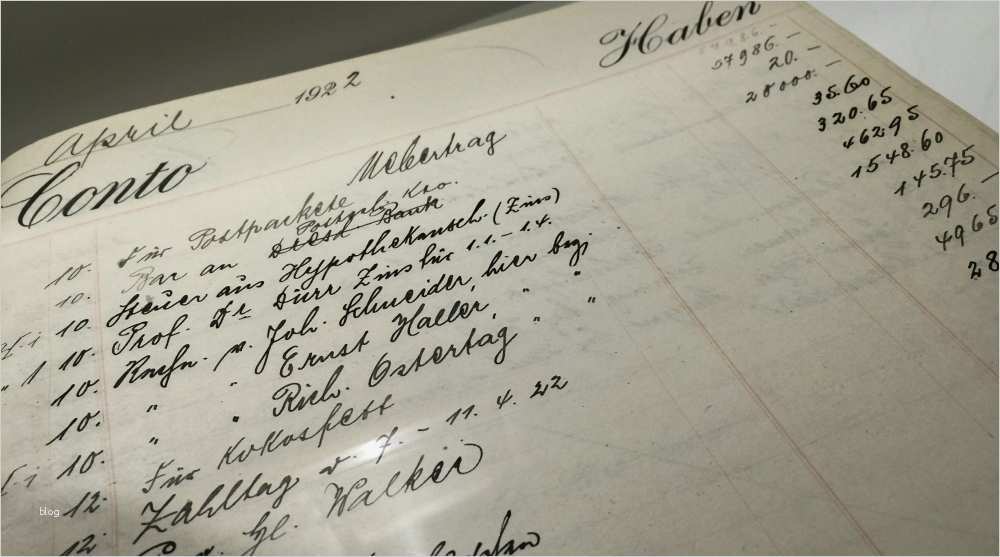 April 1922
Conto Haben
Uebertrag 57986.—
10. Für Postpackete 20.—
Kto.
10. Bar an Bank 20000.—
10. Steuer aus (Zins) 35.60
10. Prof. Dr. Dürr Zins für 1.1.-1.4. 320.65
10. v. Joh. Schneider, hier 462 95
10. " " Ernst Haller, " " 1548.60
10. " " Rich. Ostertag " " 145.75
12. Für Kokosfett 296.—
12. Zahltag v. 7.- 11. 4. 22 4965
Walker 28
blog